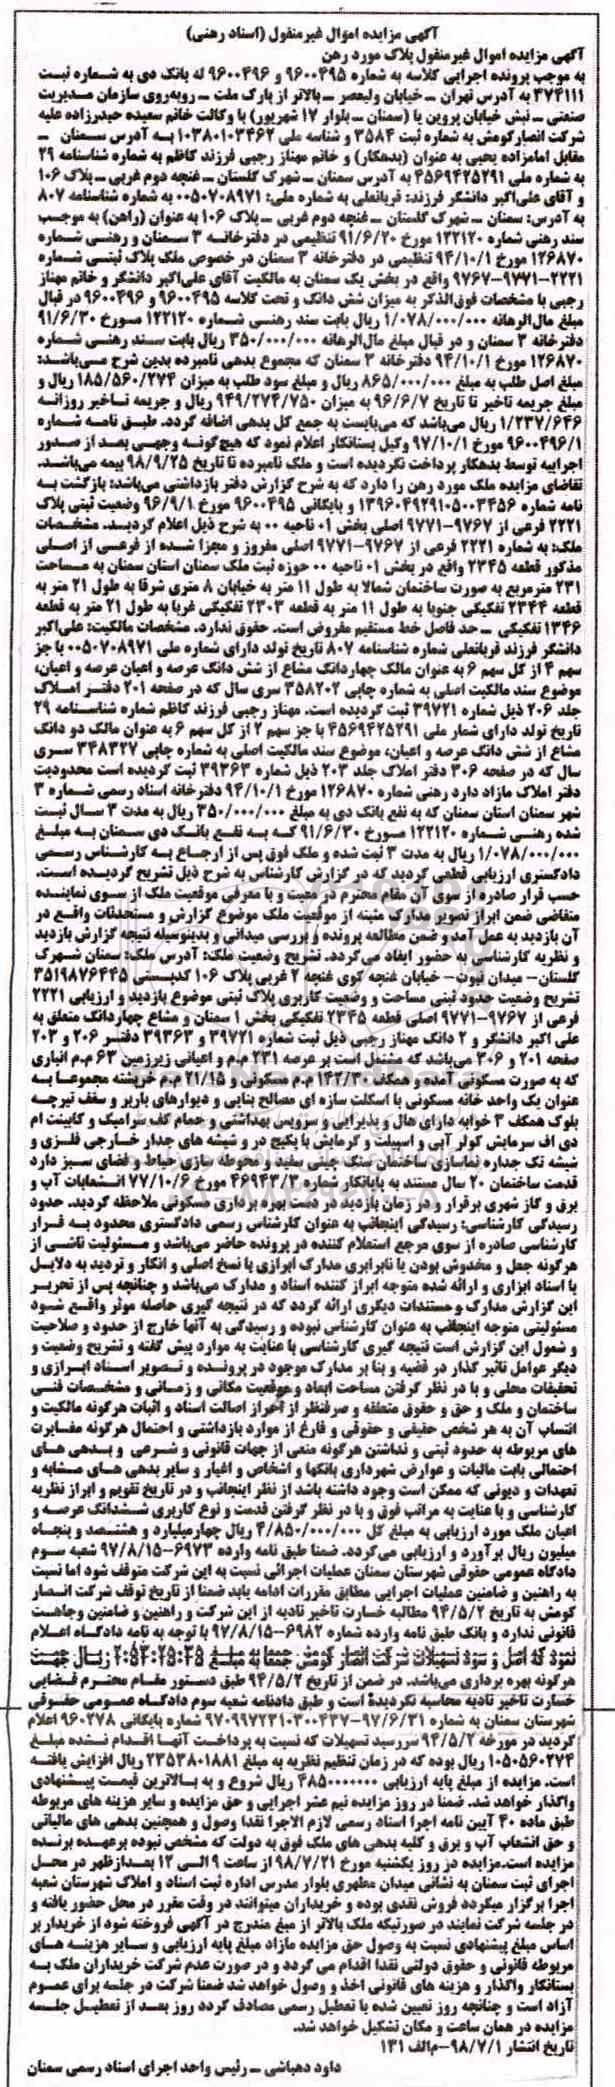 آگهی مزایده اموال غیرمنقول (اسناد رهنی)
آگهی مزایده اموال غیرمنقول پلاک مورد رهن
به موجب پرونده اجرایی کلاسه به شماره ۹۶۰۰۴۹۵ و ۹۶۰۰۴۹۶ له بانک دی به شماره ثبت
۳۷۴۱۱۱ به آدرس تهران ـ خیابان ولیعصر ـ بالاتر از پارک ملت ـ روبه‌روی سازمان مدیریت
صنعتی ـ نبش خیابان پروین یا (سمنان ـ بلوار ۱۷ شهریور) با وکالت خانم سعیده حیدرزاده علیه
شرکت انصارکومش به شماره ثبت ۳۵۸۴ و شناسه ملی ۱۰۳۸۰۱۰۳۴۶۲ به آدرس سمنان ـ
مقابل امامزاده یحیی به عنوان (بدهکار) و خانم مهناز رجبی فرزند کاظم به شماره شناسنامه ۲۹
به شماره ملی ۴۵۶۹۴۲۵۲۹۱ به آدرس سمنان ـ شهرک گلستان ـ غنچه دوم غربی ـ پلاک ۱۰۶
و آقای علی‌اکبر دانشگر فرزند: قربانعلی به شماره ملی: ۰۰۵۰۷۰۸۹۷۱ به شماره شناسنامه ۸۰۷
به آدرس: سمنان ـ شهرک گلستان ـ غنچه دوم غربی ـ پلاک ۱۰۶ به عنوان (راهن) به موجب
سند رهنی شماره ۱۲۲۱۲۰ مورخ ۹۱/۶/۲۰ تنظیمی در دفترخانه ۳ سمنان و رهنی شماره
۱۲۶۸۷۰ مورخ ۹۴/۱۰/۱ تنظیمی در دفترخانه ۳ سمنان در خصوص ملک پلاک ثبتی شماره
۲۲۲۱-۹۷۷۱-۹۷۶۷ واقع در بخش یک سمنان به مالکیت آقای علی‌اکبر دانشگر و خانم مهناز
رجبی با مشخصات فوق‌الذکر به میزان شش دانگ و تحت کلاسه ۹۶۰۰۴۹۵ و ۹۶۰۰۴۹۶ در قبال
مبلغ مال‌الرهانه ۱/۰۷۸/۰۰۰/۰۰۰ ریال بابت سند رهنی شماره ۱۲۲۱۲۰ مورخ ۹۱/۶/۳۰
دفترخانه ۳ سمنان و در قبال مبلغ مال‌الرهانه ۳۵۰/۰۰۰/۰۰۰ ریال بابت سند رهنی شماره
۱۲۶۸۷۰ مورخ ۹۴/۱۰/۱ دفترخانه ۳ سمنان که مجموع بدهی نامبرده بدین شرح می‌باشد:
مبلغ اصل طلب به مبلغ ۸۶۵/۰۰۰/۰۰۰ ریال و مبلغ سود طلب به میزان ۱۸۵/۵۶۰/۲۷۴ ریال و
مبلغ جریمه تاخیر تا تاریخ ۹۶/۶/۷ به میزان ۹۴۹/۲۷۴/۷۵۰ ریال و جریمه تاخیر روزانه
۱/۲۳۷/۶۴۶ ریال می‌باشد که می‌بایست به جمع کل بدهی اضافه گردد. طبق نامه شماره
۹۶۰۰۴۹۶/۱ مورخ ۹۷/۱۰/۱ وکیل بستانکار اعلام نمود که هیچ‌گونه وجهی بعد از صدور
اجراییه توسط بدهکار پرداخت نگردیده است و ملک نامبرده تا تاریخ ۹۸/۹/۲۵ بیمه می‌باشد.
تقاضای مزایده ملک مورد رهن را دارد که به شرح گزارش دفتر بازداشتی می‌باشد: بازگشت به
نامه شماره ۱۳۹۶۰۴۹۲۹۱۰۵۰۰۳۴۵۶ و بایگانی ۹۶۰۰۴۹۵ مورخ ۹۶/۹/۱ وضعیت ثبتی پلاک
۲۲۲۱ فرعی از ۹۷۶۷-۹۷۷۱ اصلی بخش ۰۱ ناحیه ۰۰ به شرح ذیل اعلام گردید. مشخصات
ملک: به شماره ۲۲۲۱ فرعی از ۹۷۶۷-۹۷۷۱ اصلی مفروز و مجزا شده از فرعی از اصلی
مذکور قطعه ۲۳۴۵ واقع در بخش ۰۱ ناحیه ۰۰ حوزه ثبت ملک سمنان استان سمنان به مساحت
۲۳۱ مترمربع به صورت ساختمان شمالا به طول ۱۱ متر به خیابان ۸ متری شرقا به طول ۲۱ متر به
قطعه ۲۳۴۴ تفکیکی جنوبا به طول ۱۱ متر به قطعه ۲۳۰۳ تفکیکی غربا به طول ۲۱ متر به قطعه
۱۳۴۶ تفکیکی ـ حد فاصل خط مستقیم مفروض است. حقوق ندارد. مشخصات مالکیت: علی‌اکبر
دانشگر فرزند قربانعلی شماره شناسنامه ۸۰۷ تاریخ تولد دارای شماره ملی ۰۰۵۰۷۰۸۹۷۱ با جز
سهم ۴ از کل سهم ۶ به عنوان مالک چهاردانگ مشاع از شش دانگ عرصه و اعیان عرصه و اعیان،
موضوع سند مالکیت اصلی به شماره چاپی ۳۵۸۲۰۲ سری سال که در صفحه ۲۰۱ دفتر املاک
جلد ۲۰۶ ذیل شماره ۳۹۷۲۱ ثبت گردیده است. مهناز رجبی فرزند کاظم شماره شناسنامه ۲۹
تاریخ تولد دارای شمار ملی ۴۵۶۹۴۲۵۲۹۱ با جز سهم ۲ از کل سهم ۶ به عنوان مالک دو دانگ
مشاع از شش دانگ عرصه و اعیان، موضوع سند مالکیت اصلی به شماره چاپی ۳۴۸۳۲۷ سری
سال که در صفحه ۳۰۶ دفتر املاک جلد ۲۰۳ ذیل شماره ۳۹۳۶۳ ثبت گردیده است محدودیت
دفتر املاک مازاد دارد رهنی شماره ۱۲۶۸۷۰ مورخ ۹۴/۱۰/۱ دفترخانه اسناد رسمی شماره ۳
شهر سمنان استان سمنان که به نفع بانک دی به مبلغ ۳۵۰/۰۰۰/۰۰۰ ریال به مدت ۳ سال ثبت
شده رهنی شماره ۱۲۲۱۲۰ مورخ ۹۱/۶/۳۰ که به نفع بانک دی سمنان به مبلغ
۱/۰۷۸/۰۰۰/۰۰۰ ریال به مدت ۳ ثبت شده و ملک فوق پس از ارجاع به کارشناس رسمی
دادگستری ارزیابی قطعی گردید که در گزارش کارشناس به شرح ذیل تشریح گردیده است.
حسب قرار صادره از سوی آن مقام محترم در معیت و با معرفی موقعیت ملک از سوی نماینده
متقاضی ضمن ابراز تصویر مدارک مثبته از موقعیت ملک موضوع گزارش و مستحدثات واقع در
آن بازدید به عمل آمد و ضمن مطالعه پرونده و بررسی میدانی و بدینوسیله نتیجه گزارش بازدید
و نظریه کارشناسی به حضور ایفاد می‌گردد. تشریح وضعیت ملک: آدرس ملک: سمنان شهرک
گلستان- میدان نبوت- خیابان غنچه کوی غنچه ۲ غربی پلاک ۱۰۶ کدپستی ۳۵۱۹۸۷۶۴۴۵
تشریح وضعیت حدود ثبتی مساحت و وضعیت کاربری پلاک ثبتی موضوع بازدید و ارزیابی ۲۲۲۱
فرعی از ۹۷۶۷-۹۷۷۱ اصلی قطعه ۲۳۴۵ تفکیکی بخش ۱ سمنان و مشاع چهاردانگ متعلق به
علی اکبر دانشگر و ۲ دانگ مهناز رجبی ذیل ثبت شماره ۳۹۷۲۱ و ۳۹۳۶۳ دفتر ۲۰۶ و ۲۰۳
صفحه ۲۰۱ و ۳۰۶ می‌باشد که مشتمل است بر عرصه ۲۳۱ م.م و اعیانی زیرزمین ۶۳ م.م انباری
که به صورت مسکونی آمده و همکف ۱۴۲/۲۰ م.م مسکونی و ۲۱/۱۵ م.م خرپشته مجموعا به
عنوان یک واحد خانه مسکونی با اسکلت سازه ای مصالح بنایی و دیوارهای باربر و سقف تیرچه
بلوک همکف ۳ خوابه دارای هال و پذیرایی و سرویس بهداشتی و حمام کف سرامیک و کابینت ام
دی اف سرمایش کولر آبی و اسپیلت و گرمایش با پکیج در و شیشه های جدار خارجی فلزی و
شیشه تک جداره نماسازی ساختمان سنگ چینی سفید و محوطه سازی حیاط و فضای سبز دارد
قدمت ساختمان ۲۰ سال مستند به پایانکار شماره ۴۶۹۴۳/۳ مورخ ۷۷/۱۰/۶ انشعابات آب و
برق و گاز شهری برقرار و در زمان بازدید در دست بهره برداری مسکونی ملاحظه گردید. حدود
رسیدگی کارشناسی: رسیدگی اینجانب به عنوان کارشناس رسمی دادگستری محدود به قرار
کارشناسی صادره از سوی مرجع استعلام کننده در پرونده حاضر می‌باشد و مسئولیت ناشی از
هرگونه جعل و مخدوش بودن یا نابرابری مدارک ابرازی با نسخ اصلی و انکار و تردید به دلایل
یا اسناد ابرازی و ارائه شده متوجه ابراز کننده اسناد و مدارک می‌باشد و چنانچه پس از تحریر
این گزارش مدارک و مستندات دیگری ارائه گردد که در نتیجه گیری حاصله موثر واقع شود
مسئولیتی متوجه اینجانب به عنوان کارشناس نبوده و رسیدگی به آنها خارج از حدود و صلاحیت
و شمول این گزارش است نتیجه گیری کارشناسی با عنایت به موارد پیش گفته و تشریح وضعیت و
دیگر عوامل تاثیر گذار در قضیه و بنا بر مدارک موجود در پرونده و تصویر اسناد ابرازی و
تحقیقات محلی و با در نظر گرفتن مساحت ابعاد و موقعیت مکانی و زمانی و مشخصات فنی
ساختمان و ملک و حق و حقوق متعلقه و صرفنظر از احراز اصالت اسناد و اثبات هرگونه مالکیت و
انتساب آن به هر شخص حقیقی و حقوقی و فارغ از موارد بازداشتی و احتمال هرگونه مغایرت
های مربوطه به حدود ثبتی و نداشتن هرگونه منعی از جهات قانونی و شرعی و بدهی های
احتمالی بابت مالیات و عوارض شهرداری بانکها و اشخاص و اغیار و سایر بدهی های مشابه و
تعهدات و دیونی که ممکن است وجود داشته باشد از نظر اینجانب و در تاریخ تقویم و ابراز نظریه
کارشناسی و با عنایت به مراتب فوق و با در نظر گرفتن قدمت و نوع کاربری ششدانگ عرصه و
اعیان ملک مورد ارزیابی به مبلغ کل ۴/۸۵۰/۰۰۰/۰۰۰ ریال چهارمیلیارد و هشتصد و پنجاه
میلیون ریال برآورد و ارزیابی می‌گردد. ضمنا طبق نامه وارده ۶۹۷۳-۹۷/۸/۱۵ شعبه سوم
دادگاه عمومی حقوقی شهرستان سمنان عملیات اجرائی نسبت به این شرکت متوقف شود اما نسبت
به راهنین و ضامنین عملیات اجرایی مطابق مقررات ادامه یابد ضمنا از تاریخ توقف شرکت انصار
کومش به تاریخ ۹۴/۵/۲ مطالبه خسارت تاخیر تادیه از این شرکت و راهنین و ضامنین وجاهت
قانونی ندارد و بانک طبق نامه وارده شماره ۶۹۸۲-۹۷/۸/۱۵ با توجه به نامه دادگاه اعلام
نمود که اصل و سود تسهیلات شرکت انصار کومش جمعا به مبلغ ریال جهت
هرگونه بهره برداری می‌باشد. در ضمن از تاریخ ۹۴/۵/۲ طبق دستور مقام محترم قضایی
خسارت تاخیر تادیه محاسبه نگردیده است و طبق دادنامه شعبه سوم دادگاه عمومی حقوقی
شهرستان سمنان به شماره ۹۷/۶/۳۱-۹۷۰۹۹۷۲۳۱۰۳۰۰۴۳۷ شماره بایگانی ۹۶۰۲۷۸ اعلام
گردید در مورخه ۹۴/۵/۲ سررسید تسهیلات که نسبت به پرداخت آنها اقدام نشده مبلغ
۱۰۵۰۵۶۰۲۷۴ ریال بوده که در زمان تنظیم نظریه به مبلغ ۲۳۵۳۸۰۱۸۸۱ ریال افزایش یافته
است. مزایده از مبلغ پایه ارزیابی ۴۸۵۰۰۰۰۰۰۰ ریال شروع و به بالاترین قیمت پیشنهادی
واگذار خواهد شد. ضمنا در روز مزایده نیم عشر اجرایی و حق مزایده و سایر هزینه های مربوطه
طبق ماده ۴۰ آیین نامه اجرا اسناد رسمی لازم الاجرا نقدا وصول و همچنین بدهی های مالیاتی
و حق انشعاب آب و برق و کلیه بدهی های ملک فوق به دولت که مشخص نبوده برعهده برنده
مزایده است.مزایده در روز یکشنبه مورخ ۹۸/۷/۲۱ از ساعت ۹ الی ۱۲ بعدازظهر در محل
اجرای ثبت سمنان به نشانی میدان مطهری بلوار مدرس اداره ثبت اسناد و املاک شهرستان شعبه
اجرا برگزار میگردد فروش نقدی بوده و خریداران میتوانند در وقت مقرر در محل حضور یافته و
در جلسه شرکت نمایند در صورتیکه ملک بالاتر از مبلغ مندرج در آگهی فروخته شود از خریدار بر
اساس مبلغ پیشنهادی نسبت به وصول حق مزایده مازاد مبلغ پایه ارزیابی و سایر هزینه های
مربوطه قانونی و حقوق دولتی نقدا اقدام می گردد و در صورت عدم شرکت خریداران ملک به
بستانکار واگذار و هزینه های قانونی اخذ و وصول خواهد شد ضمنا شرکت در جلسه برای عموم
آزاد است و چنانچه روز تعیین شده با تعطیل رسمی مصادف گردد روز بعد از تعطیل جلسه
مزایده در همان ساعت و مکان تشکیل خواهد شد.
تاریخ انتشار ۹۸/۷/۱-م‌الف ۱۳۱
داود دهباشی ـ رئیس واحد اجرای اسناد رسمی سمنان